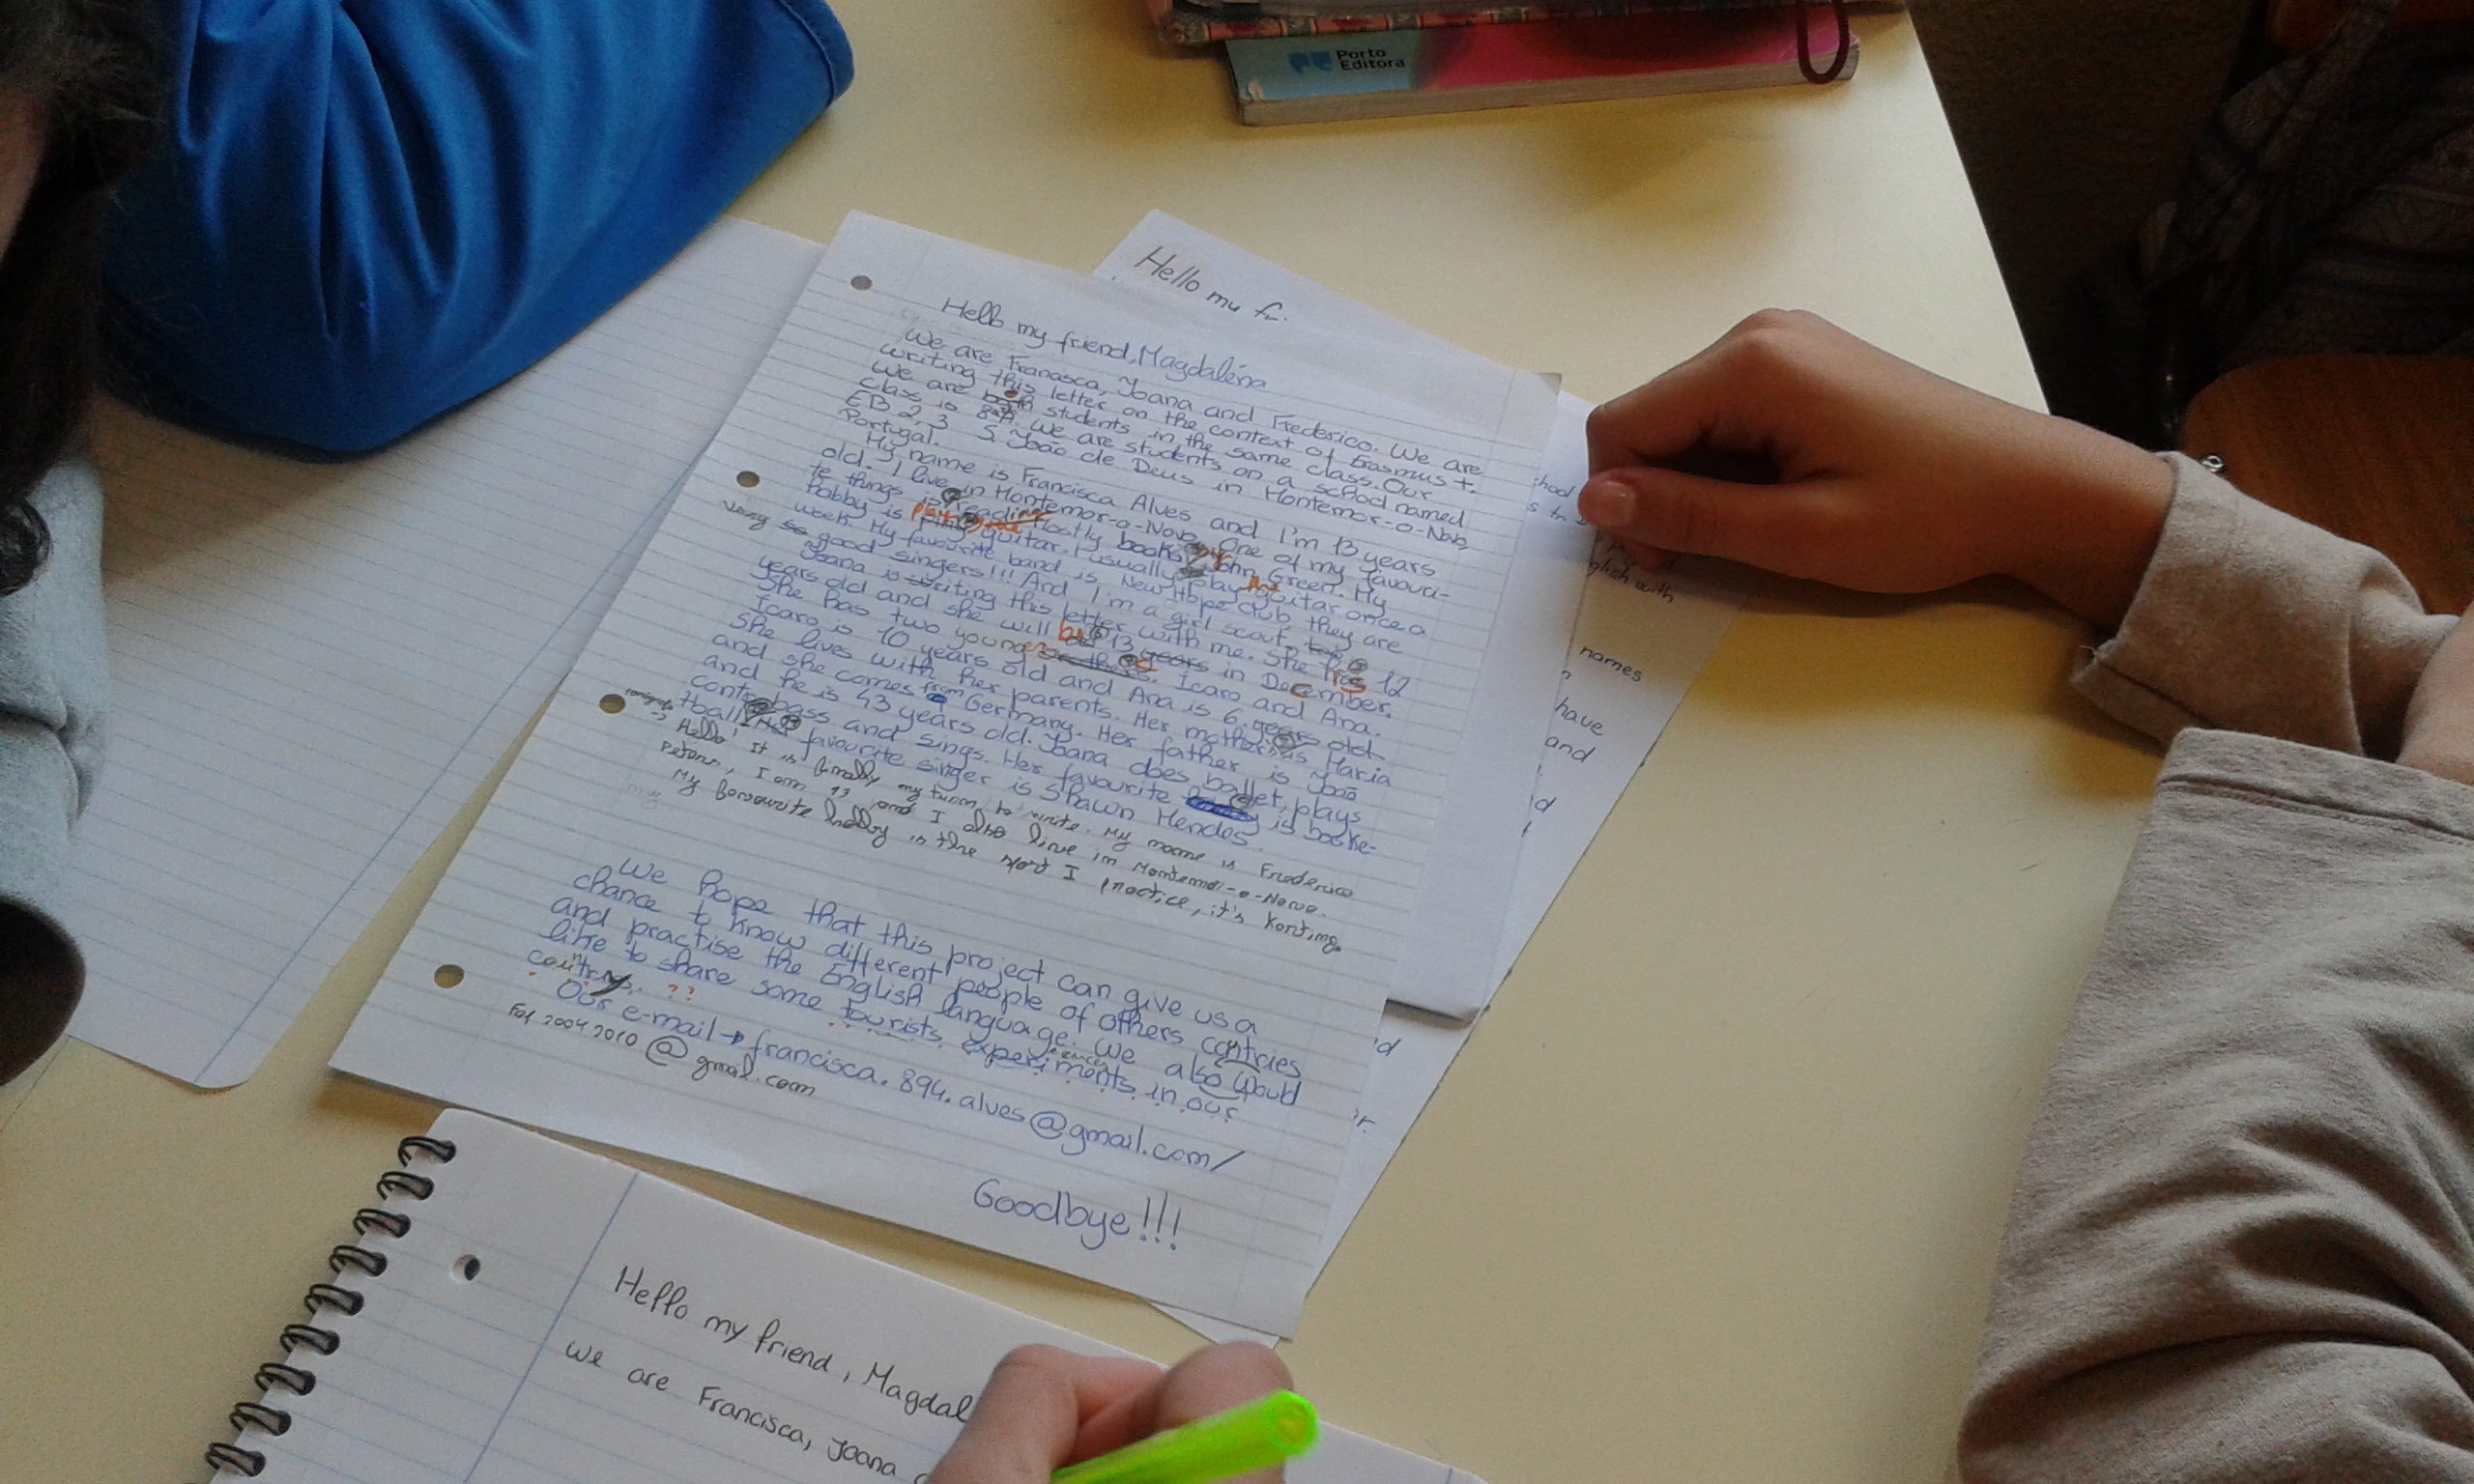 Porto
Editora
Hello my fr.
Hello my friend, Magdaléna
We are Francisca, Joana and Frederico. We are
writing this letter on the context of Erasmus +.
We are students in the same class. Our
class is 8th. We are students on a school named
EB 2,3 S. João de Deus in Montemor-o-Novo,
Portugal.
My name is Francisca Alves and I'm 13 years
old. I live in Montemor-o-Novo. One of my favouri-
te things is reading mostly books by John Green. My
hobby is playing guitar. I usually play the guitar once a
week. My favourite band is New Hope Club, they are
very so good singers!!! And I'm a girl scout, too
Joana is writing this letter with me. She is 12
years old and she will be 13 years in December.
She has two younger Icaro and Ana.
Icaro is 10 years old and Ana is 6 years old
She lives with her parents. Her mother is Maria
and she comes from Germany. Her father is João
and he is 43 years old. Joana does ballet, plays
contrabass and sings. Her favourite is baske-
tball. Her favourite singer is Shawn Mendes.
Hello! It is finally my turn to write. My name is Frederico
Peters, I am 13 and I also live in Montemor-o-Novo.
My favourite hobby is the sport I practice, it's karting.
my
We hope that this project can give us a
chance to know different people of others contries
and practise the English language. We also would
like to share some tourists experiments in our
country. ??
Our e-mail → francisca.894.alves@gmail.com/
Faf 2004 2010 @gmail.com
Goodbye!!!
hool
glish with
names
have
and
d
Hello my friend, Magdal
We are Francisca, Joana